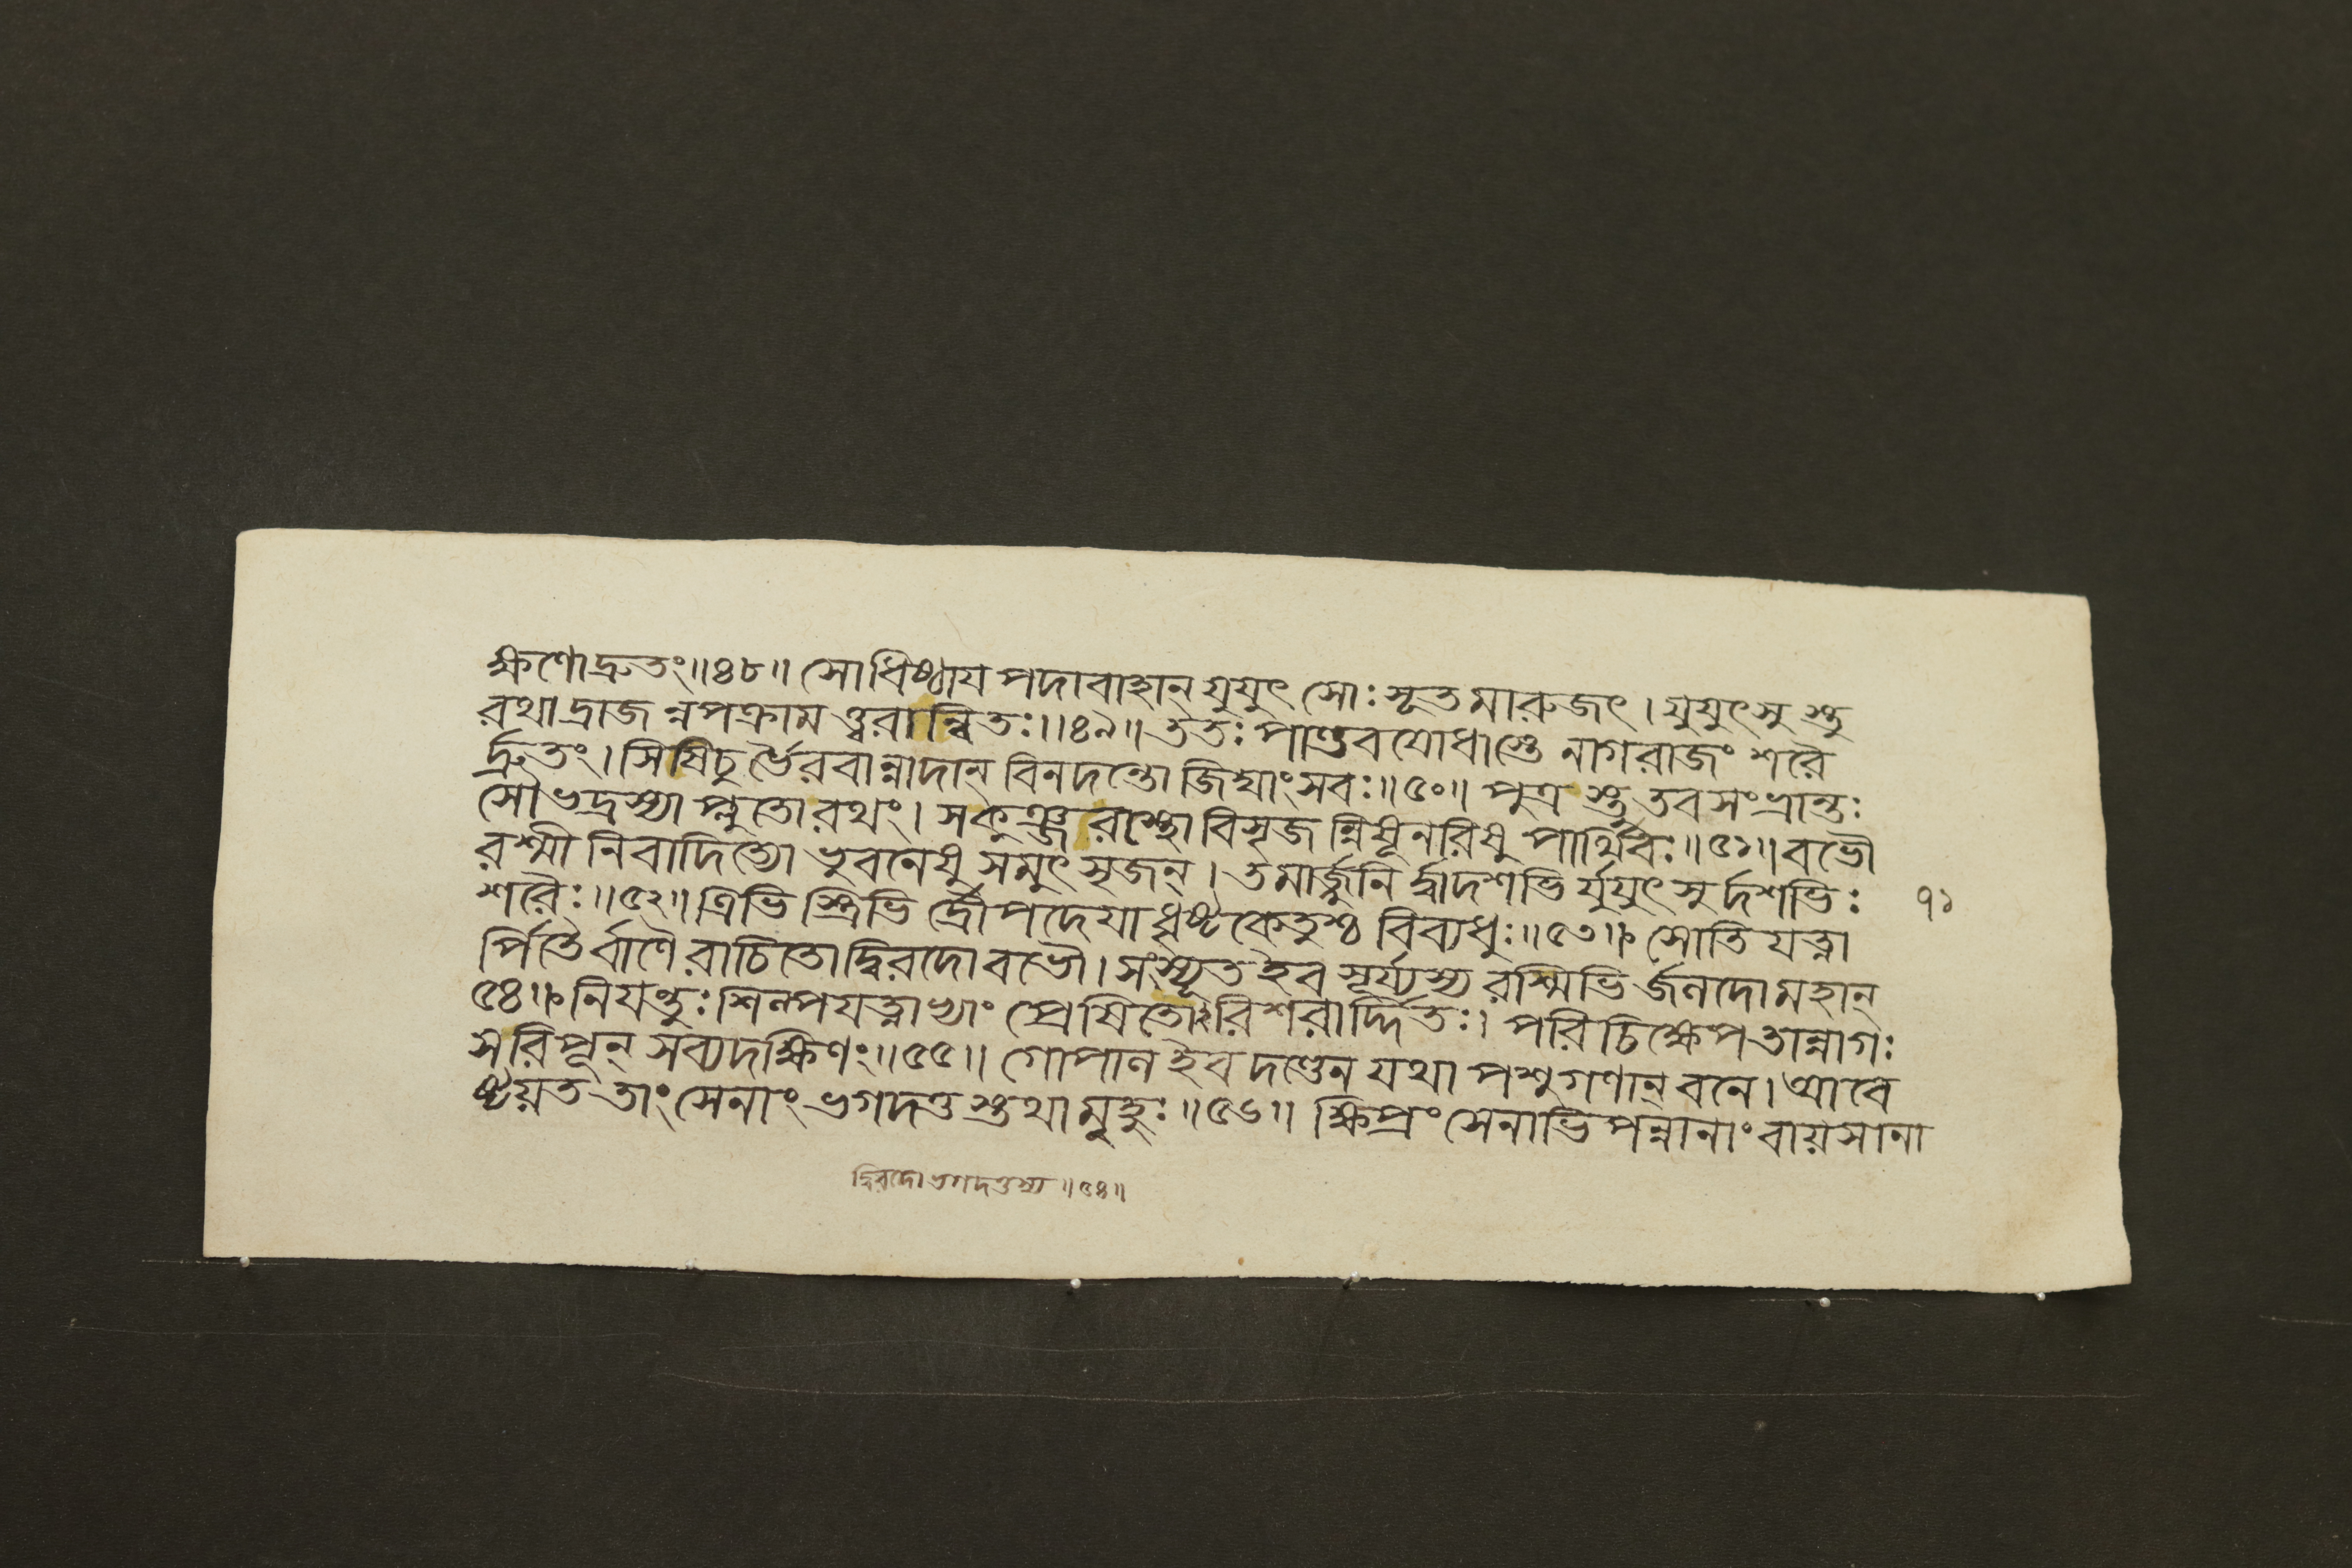 ক্ষিণোদ্রুতং॥৪৮॥ সোধিষ্ঠায পদাবাহান্ যুযুৎ সোঃ সূত মারুজৎ। যুযুৎসু স্তু
রথাদ্রাজ ন্নপক্রাম ত্ত্বরান্বিতঃ॥৪৯॥ ততঃ পাণ্ডবযোধাস্তে নাগরাজং শরৈ
র্দ্রুতং। সিষিচু র্ভৈরবান্নাদান্ বিনদন্তো জিঘাংসবঃ॥৫০॥ পুত্র স্তু তবসংভ্রান্তঃ
সৌভদ্রস্যা প্লুতোরথং। সকুঞ্জরাস্থো বিসৃজ ন্নিষূনরিষু পার্থিবঃ॥৫১॥ বভৌ
রশ্মী নিবাদিত্যো ভুবনেষু সমুৎ সৃজন্। তমার্জ্জুনি র্দ্বাদশভি র্যুযুৎ সুর্দশভিঃ
শরৈঃ॥৫২॥ ত্রিভি স্ত্রিভি র্দ্রৌপদেযা ধৃষ্টকেতুশ্চ বিব্যধুঃ॥৫৩॥ সোতি যত্না
র্পিতৈর্বাণৈ রাচিতোদ্বিরদো বভৌ। সংস্যূত ইব সূর্য্যস্য রশ্মিভি র্জলদোমহান্
৫৪॥ নিযন্তুঃ শিল্পযত্নাভ্যাং প্রেষিতোঽরিশরার্দ্দিতঃ। পরিচিক্ষেপতান্নাগঃ
সরিপূন্ সব্যদক্ষিণং॥৫৫॥ গোপাল ইব দণ্ডেন যথা পশুগণান্ বনে। আবে
ষ্টয়ত তাং সেনাং ভগদত্ত স্তথা মুহুঃ॥৫৬॥ ক্ষিপ্রং সেনাভিপন্নানাং বায়সানা
৭১
দ্বিরদো ভগদত্তস্য॥৫৪॥